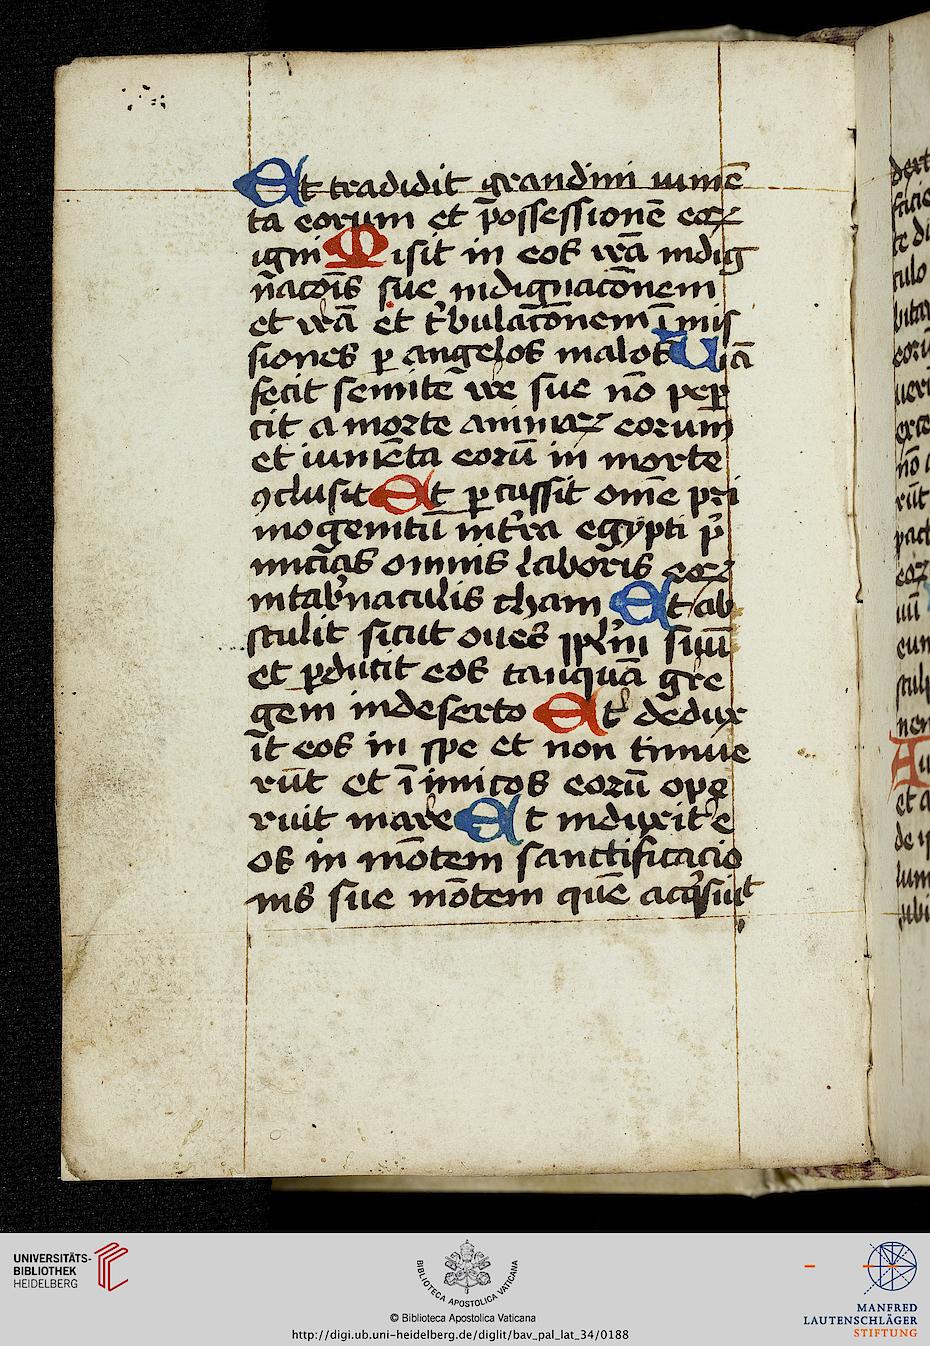 Et tradidit grandini iumē
ta eorum et p̄ossessionē eoꝝ
igni Misit in eos irā indig
n̄acōis sue indignacōnem
et irā et t̓bulac̄onem īmis
siones ꝑ angelos malos Uiā
fecit semitē ire sue nō peꝑ
cit a morte animaꝝ eorum
et iumēta eorū in morte
ꝯclusit Et ꝑcussit om̄e pri
mogenitū int̓ra egypti p̓
mic̄ias omnis laboris eoꝝ
intab̓naculis cham Et ab
stulit sicut oues ppl̓m suū
et ꝑduxit eos tanquā gre
gem indeserto Et dedux
īt eos in spe et non timue
rūt et īimicos eorū oꝑe
ruit mare Et induxit e
os in mōtem sanctificacio
nis sue mōtem quē acq̓siuit
dext
facie
te di
culo
bitar
eorū
ueri
exce
nō a
rūt
pact
eoꝝ
uū
eum
sculp
nem
Au
et a
de ip
lum
ubi
UNIVERSITÄTS-
BIBLIOTHEK
HEIDELBERG
BIBLIOTECA APOSTOLICA VATICANA
© Biblioteca Apostolica Vaticana
http://digi.ub.uni-heidelberg.de/diglit/bav_pal_lat_34/0188
MANFRED
LAUTENSCHLÄGER
STIFTUNG